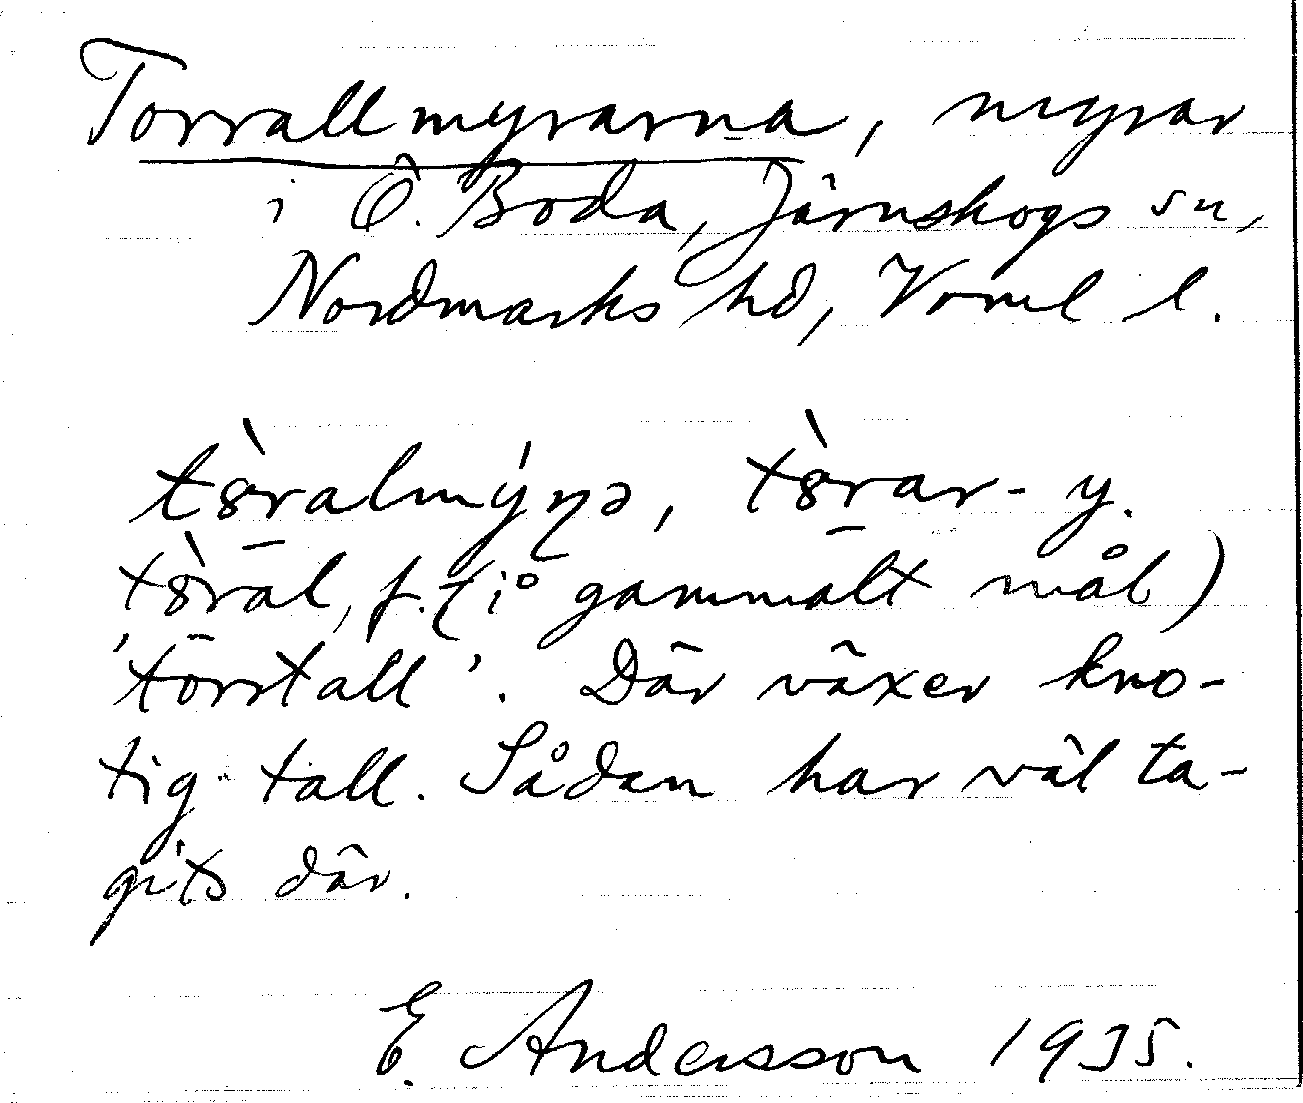 Torrallmyrarna, myrar
i Ö. Boda, Järnskogs sn,
Nordmarks hd, Vrml l.
tȣ̀ralmýɳə, tȣ̀rar- y.
tȣ̀ral, f. (i gammalt mål)
'törrtall'. Där växer kno-
tig tall. Sådan har väl ta-
gits där.
E. Andersson 1935.